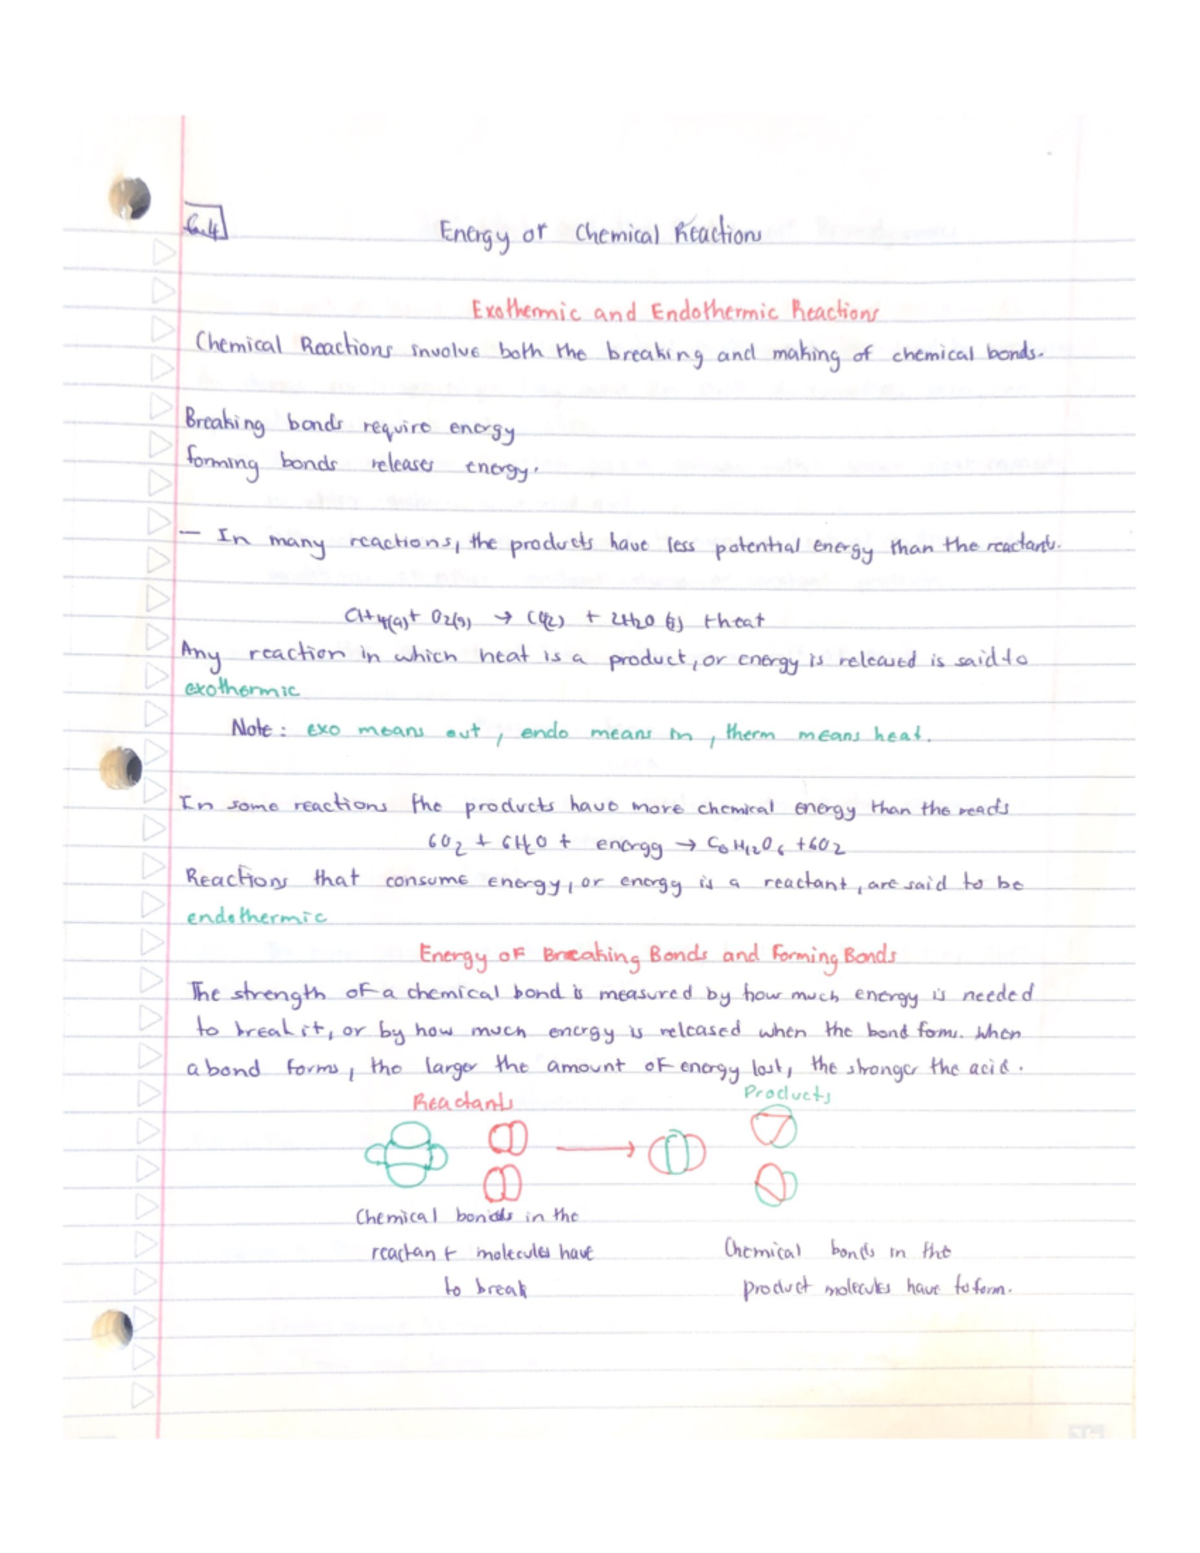 6.4
Energy of Chemical Reactions
Exothermic and Endothermic Reactions
Chemical Reactions involve both the breaking and making of chemical bonds.
Breaking bonds require energy
forming bonds releases energy.
— In many reactions, the products have less potential energy than the reactants.
CH4(g) + O2(g) → CO2) + 2H2O (g) + heat
Any reaction in which heat is a product, or energy is released is said to
exothermic
Note: exo means out, endo means in, therm means heat.
In some reactions the products have more chemical energy than the reacts
6O2 + 6H2O + energy → C6H12O6 + 6O2
Reactions that consume energy, or energy is a reactant, are said to be
endothermic
Energy of Breaking Bonds and Forming Bonds
The strength of a chemical bond is measured by how much energy is needed
to break it, or by how much energy is released when the bond forms. When
a bond forms, the larger the amount of energy lost, the stronger the acid.
Reactants Products
Chemical bonds in the
reactant molecules have
to break
Chemical bonds in the
product molecules have to form.